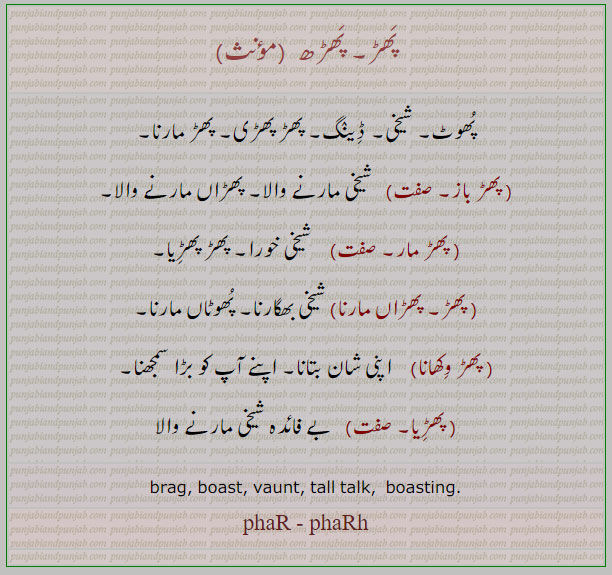 پَھڑ۔ پَھڑھ (مؤنث)
پُھوٹ۔ شیخی۔ ڈِینگ۔ پھڑ پھڑی۔ پھڑ مارنا۔
(پھڑ باز۔ صفت) شیخی مارنے والا۔ پھڑاں مارنے والا۔
(پھڑ مار۔ صفت) شیخی خورا۔ پھڑ پھڑِیا۔
(پھڑ۔ پھڑاں مارنا) شیخی بھگارنا۔ پُھوٹاں مارنا۔
(پھڑ وِکھانا) اپنی شان بتانا۔ اپنے آپ کو بڑا سمجھنا۔
(پھڑِیا۔ صفت) بے فائدہ شیخی مارنے والا
brag, boast, vaunt, tall talk, boasting.
phaR - phaRh